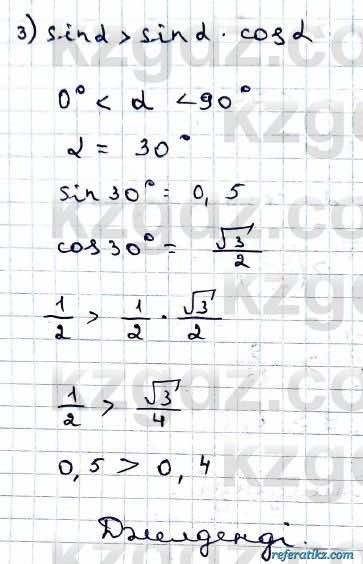 3) sin α > sin α · cos α
0° < α < 90°
α = 30°
sin 30° = 0,5
cos 30° = √3/2
1/2 > 1/2 · √3/2
1/2 > √3/4
0,5 > 0,4
Дәлелденді.
kzgdz.com
referatikz.com